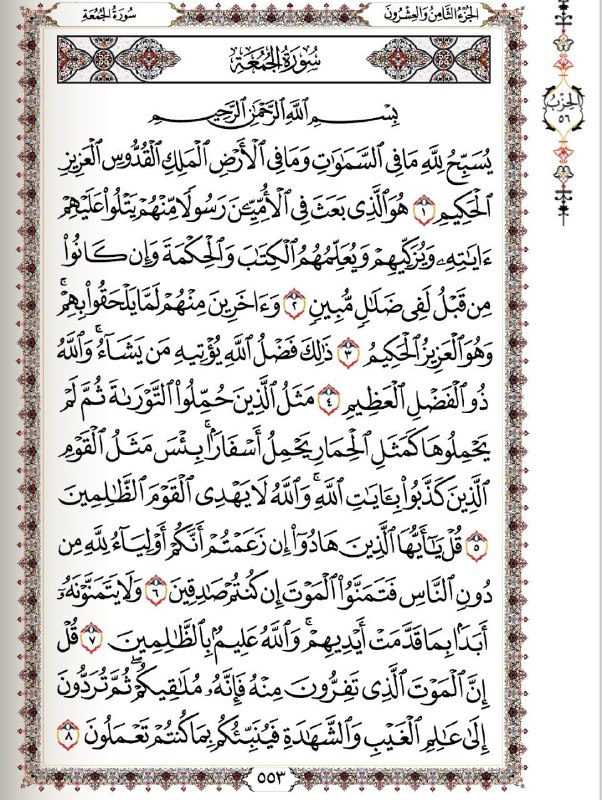 سُورَةُ الجُمُعَةِ
الجُزْءُ الثَّامِنُ وَالعِشْرُونَ
سُورَةُ الجُمُعَةِ
الحِزْبُ
٥٦
بِسْمِ ٱللَّهِ ٱلرَّحْمَٰنِ ٱلرَّحِيمِ
يُسَبِّحُ لِلَّهِ مَا فِى ٱلسَّمَٰوَٰتِ وَمَا فِى ٱلْأَرْضِ ٱلْمَلِكِ ٱلْقُدُّوسِ ٱلْعَزِيزِ
ٱلْحَكِيمِ ١ هُوَ ٱلَّذِى بَعَثَ فِى ٱلْأُمِّيِّۦنَ رَسُولًا مِّنْهُمْ يَتْلُوا۟ عَلَيْهِمْ
ءَايَٰتِهِۦ وَيُزَكِّيهِمْ وَيُعَلِّمُهُمُ ٱلْكِتَٰبَ وَٱلْحِكْمَةَ وَإِن كَانُوا۟
مِن قَبْلُ لَفِى ضَلَٰلٍ مُّبِينٍ ٢ وَءَاخَرِينَ مِنْهُمْ لَمَّا يَلْحَقُوا۟ بِهِمْ ۚ
وَهُوَ ٱلْعَزِيزُ ٱلْحَكِيمُ ٣ ذَٰلِكَ فَضْلُ ٱللَّهِ يُؤْتِيهِ مَن يَشَآءُ ۚ وَٱللَّهُ
ذُو ٱلْفَضْلِ ٱلْعَظِيمِ ٤ مَثَلُ ٱلَّذِينَ حُمِّلُوا۟ ٱلتَّوْرَىٰةَ ثُمَّ لَمْ
يَحْمِلُوهَا كَمَثَلِ ٱلْحِمَارِ يَحْمِلُ أَسْفَارًۢا ۚ بِئْسَ مَثَلُ ٱلْقَوْمِ
ٱلَّذِينَ كَذَّبُوا۟ بِـَٔايَٰتِ ٱللَّهِ ۚ وَٱللَّهُ لَا يَهْدِى ٱلْقَوْمَ ٱلظَّٰلِمِينَ
٥ قُلْ يَٰٓأَيُّهَا ٱلَّذِينَ هَادُوٓا۟ إِن زَعَمْتُمْ أَنَّكُمْ أَوْلِيَآءُ لِلَّهِ مِن
دُونِ ٱلنَّاسِ فَتَمَنَّوُا۟ ٱلْمَوْتَ إِن كُنتُمْ صَٰدِقِينَ ٦ وَلَا يَتَمَنَّوْنَهُۥٓ
أَبَدًۢا بِمَا قَدَّمَتْ أَيْدِيهِمْ ۚ وَٱللَّهُ عَلِيمٌۢ بِٱلظَّٰلِمِينَ ٧ قُلْ
إِنَّ ٱلْمَوْتَ ٱلَّذِى تَفِرُّونَ مِنْهُ فَإِنَّهُۥ مُلَٰقِيكُمْ ۖ ثُمَّ تُرَدُّونَ
إِلَىٰ عَٰلِمِ ٱلْغَيْبِ وَٱلشَّهَٰدَةِ فَيُنَبِّئُكُم بِمَا كُنتُمْ تَعْمَلُونَ ٨
٥٥٣